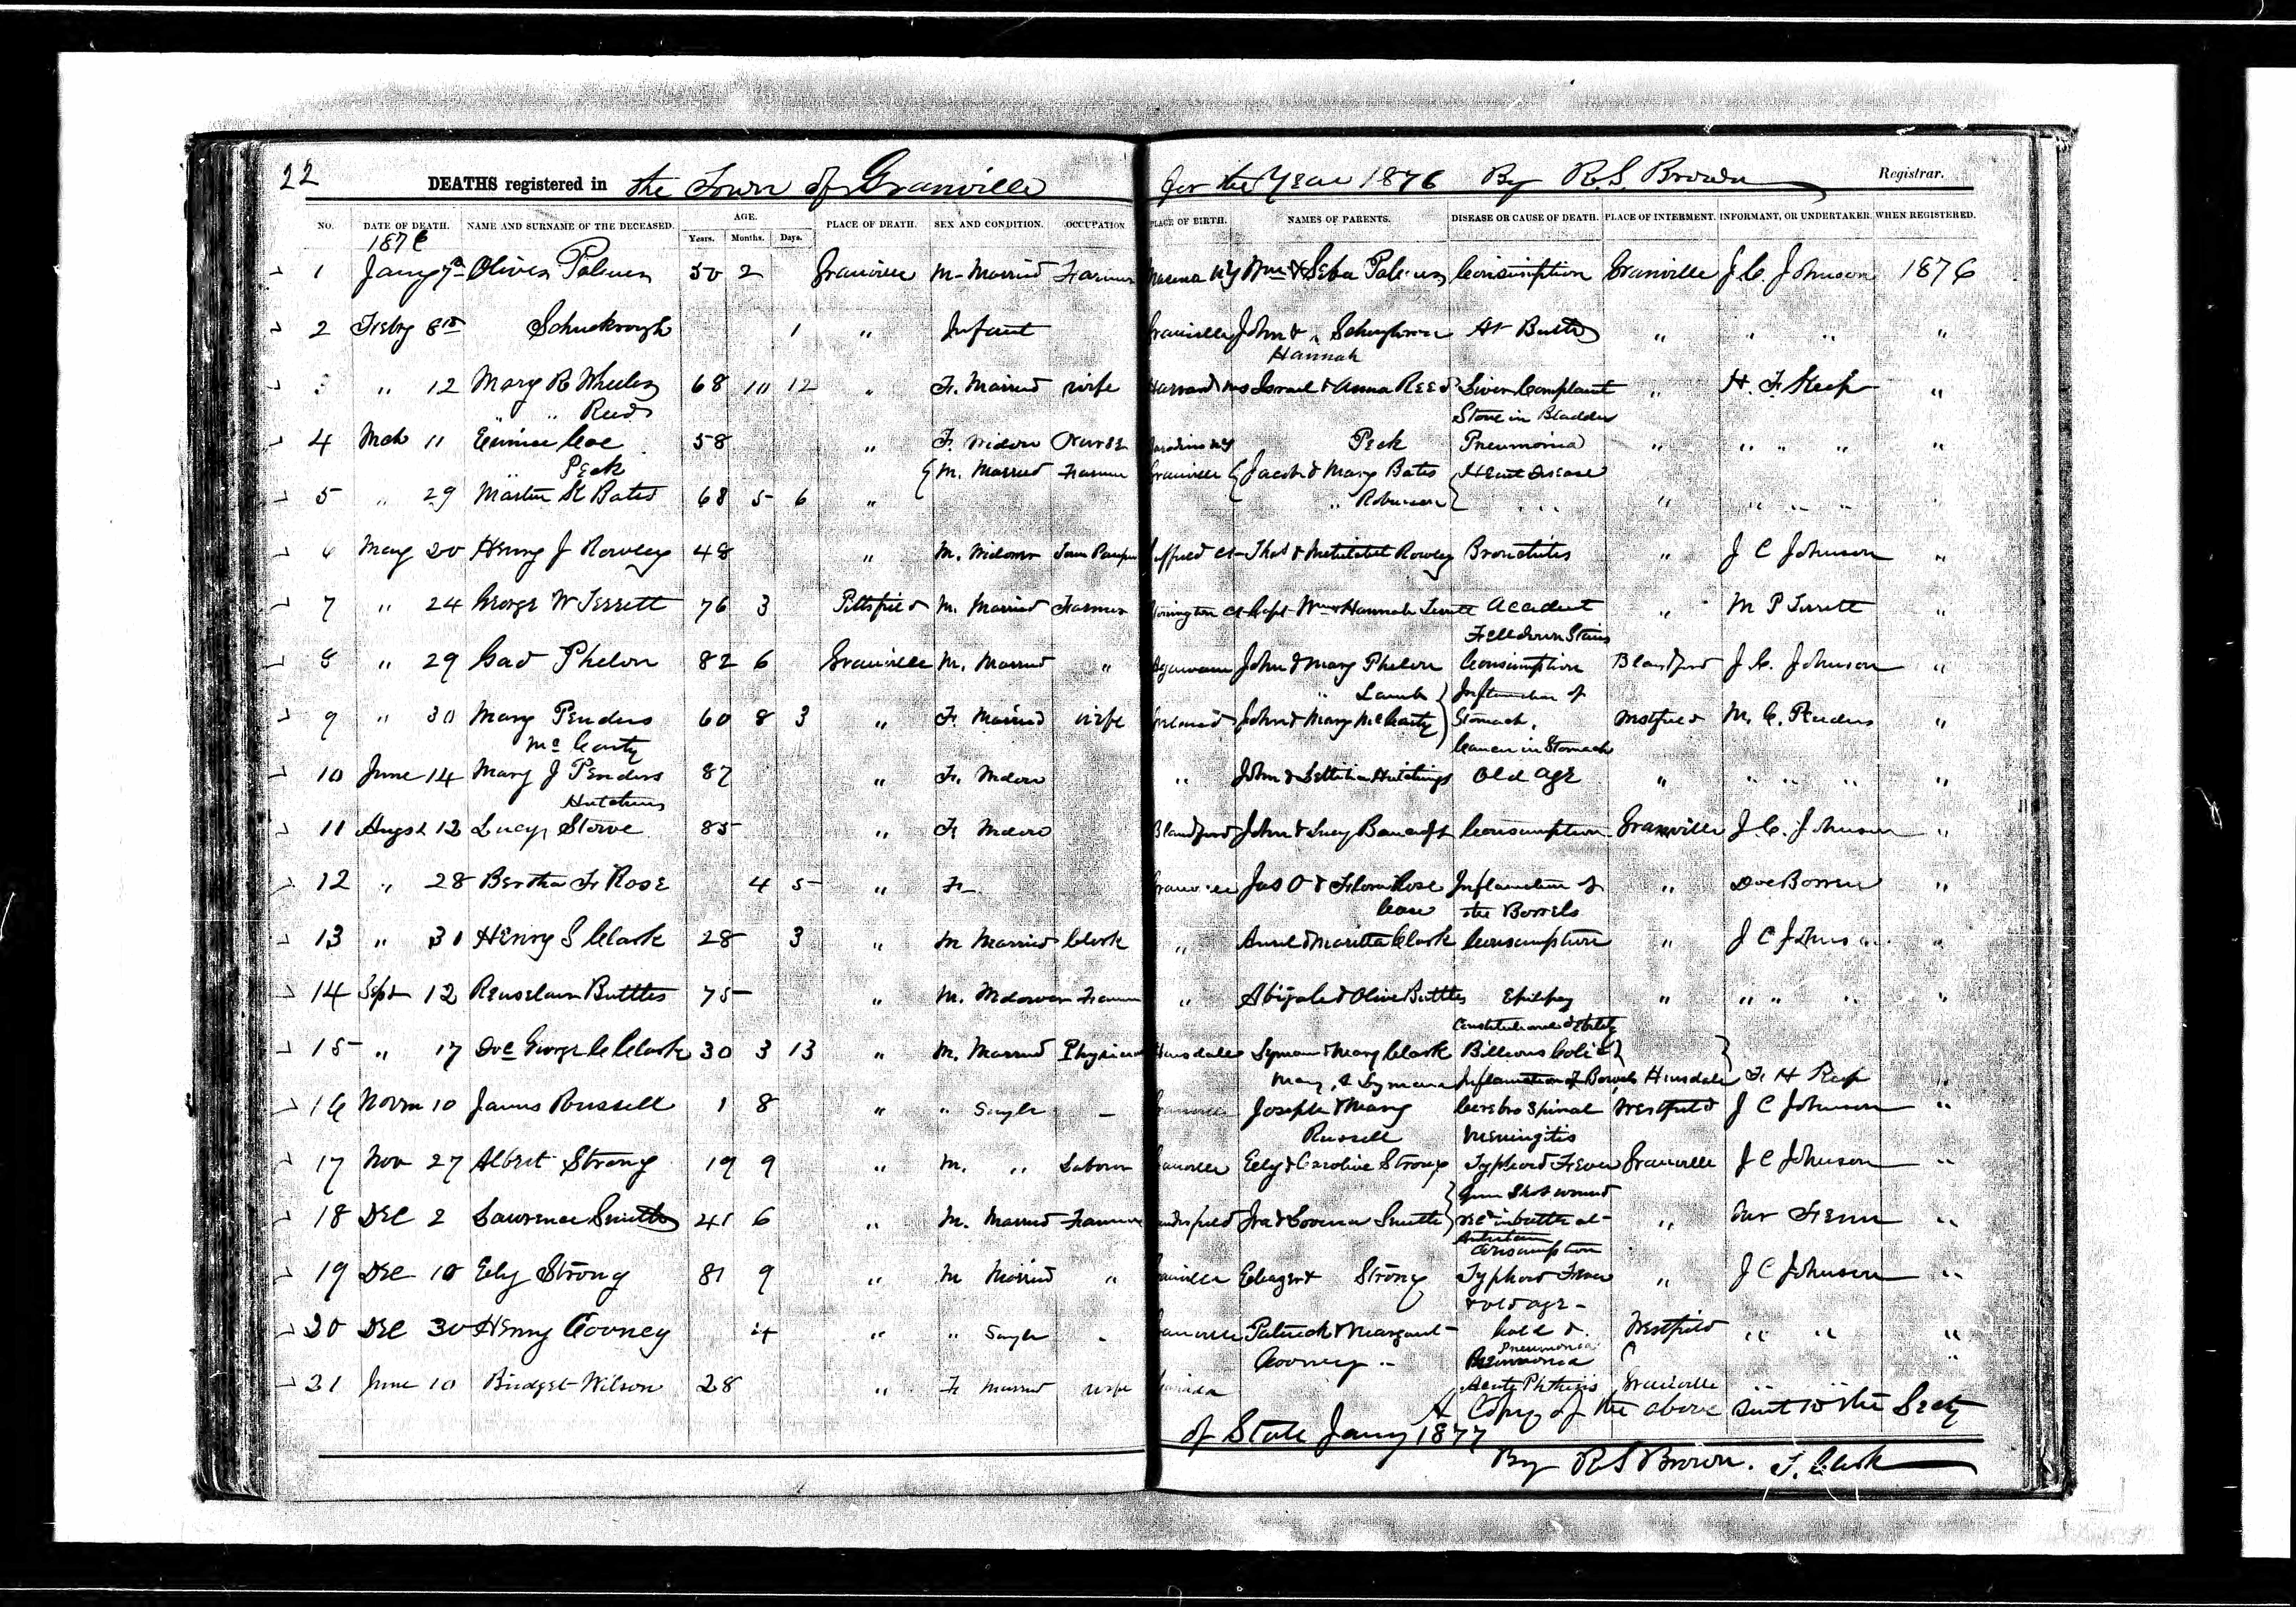 22 DEATHS registered in the Town of Granville for the Year 1876 By R. S. Brown Registrar.
NO. DATE OF DEATH. NAME AND SURNAME OF THE DECEASED. AGE. Years. Months. Days. PLACE OF DEATH. SEX AND CONDITION. OCCUPATION PLACE OF BIRTH. NAMES OF PARENTS. DISEASE OR CAUSE OF DEATH. PLACE OF INTERMENT. INFORMANT, OR UNDERTAKER. WHEN REGISTERED.
1876
1 Jany 7th Oliver Palmer 50 2 Granville M. Married Farmer NY Wm & Seba Palmer Consumption Granville J. C. Johnson 1876
2 Feby 8th 1 " Infant Granville John & " At Birth " " " "
Hannah
3 " 12 Mary R Wheeler 68 10 12 " F. Married wife Harvard Ms Israel & Anna Reed Liver Complaint " H. F. Keep "
" " Reed Stone in Bladder
4 Mch 11 Eunice Coe 58 " F. Widow Nurse NY Peck Pneumonia " " " " "
" Peck { M. Married Farmer Granville { Jacob & Mary Bates { Heart Disease
5 " 29 Martin K Bates 68 5 6 " " Robinson } " " " " "
6 May 20 Henry J Rowley 48 " M. Widower Town Pauper Suffield Ct Thos & Mehitibel Rowley Bronchitis " J C Johnson "
7 " 24 George W Terrett 76 3 Pittsfield M. Married Farmer Ct Capt Wm & Hannah Terrett Accident " M P Terrett "
Fell down Stairs
8 " 29 Gad Phelon 82 6 Granville M. Married " Agawam John & Mary Phelon Consumption Blandford J. C. Johnson "
" Lamb } Inflamation of
9 " 30 Mary Penders 60 8 3 " F. Married wife Ireland John & Mary McCarty } Stomach, Westfield M. C. Penders "
McCarty Cancer in Stomach
10 June 14 Mary J Penders 87 " F. Widow " John & Lettitia Hutchings Old age " " " " "
Hutchins
11 Augst 12 Lucy Stowe 85 " F. Widow Blandford John & Lucy Bancroft Consumption Granville J. C. Johnson "
12 " 28 Bertha F. Rose 4 5 " F. Granville Jas O & Flora Rose Inflamation of " "
Case the Bowels
13 " 31 Henry S Clark 28 3 " M Married Clerk " & Maritta Clark Consumption " J C Johnson "
14 Sept 12 Renselaer Buttles 75 " M. Widower Farmer " Abijah & Olive Buttles " " " " "
Constitutional debility
15 " 17 Doc George C Clark 30 3 13 " M. Married Physician Hinsdale Lyman & Mary Clark Billious Colic } }
Mary, & Lyman Inflamation of Bowels Hinsdale F. H Keep "
16 Novm 10 James Russell 1 8 " " Single - Granville Joseph & Mary Cerebro Spinal Westfield J C Johnson "
Russell Meningitis
17 Nov 27 Albert Strong 19 9 " M. " Laborer Granville Eely & Caroline Strong Typhoid Fever Granville J C Johnson "
} Gun Shot wound
18 Dec 2 Lawrence Smith 41 6 " M. Married Farmer Sandisfield Ira & Lovina Smith } recd in battle at " Fenn "
Antietam
Consumption
19 Dec 10 Eely Strong 81 9 " M Married " Granville & Strong Typhoid Fever " J C Johnson "
& old age -
20 Dec 30 Henry Cooney 4 " " Single - Granville Patrick & Margaret Cold & Westfield " " "
Cooney - Pneumonia
Pneumonia "
21 June 10 Bridget Wilson 28 " F Married wife Canada Acute Phthisis Granville
A Copy of the above sent to the Secty
of State Jany 1877
By R S Brown. T. Clerk